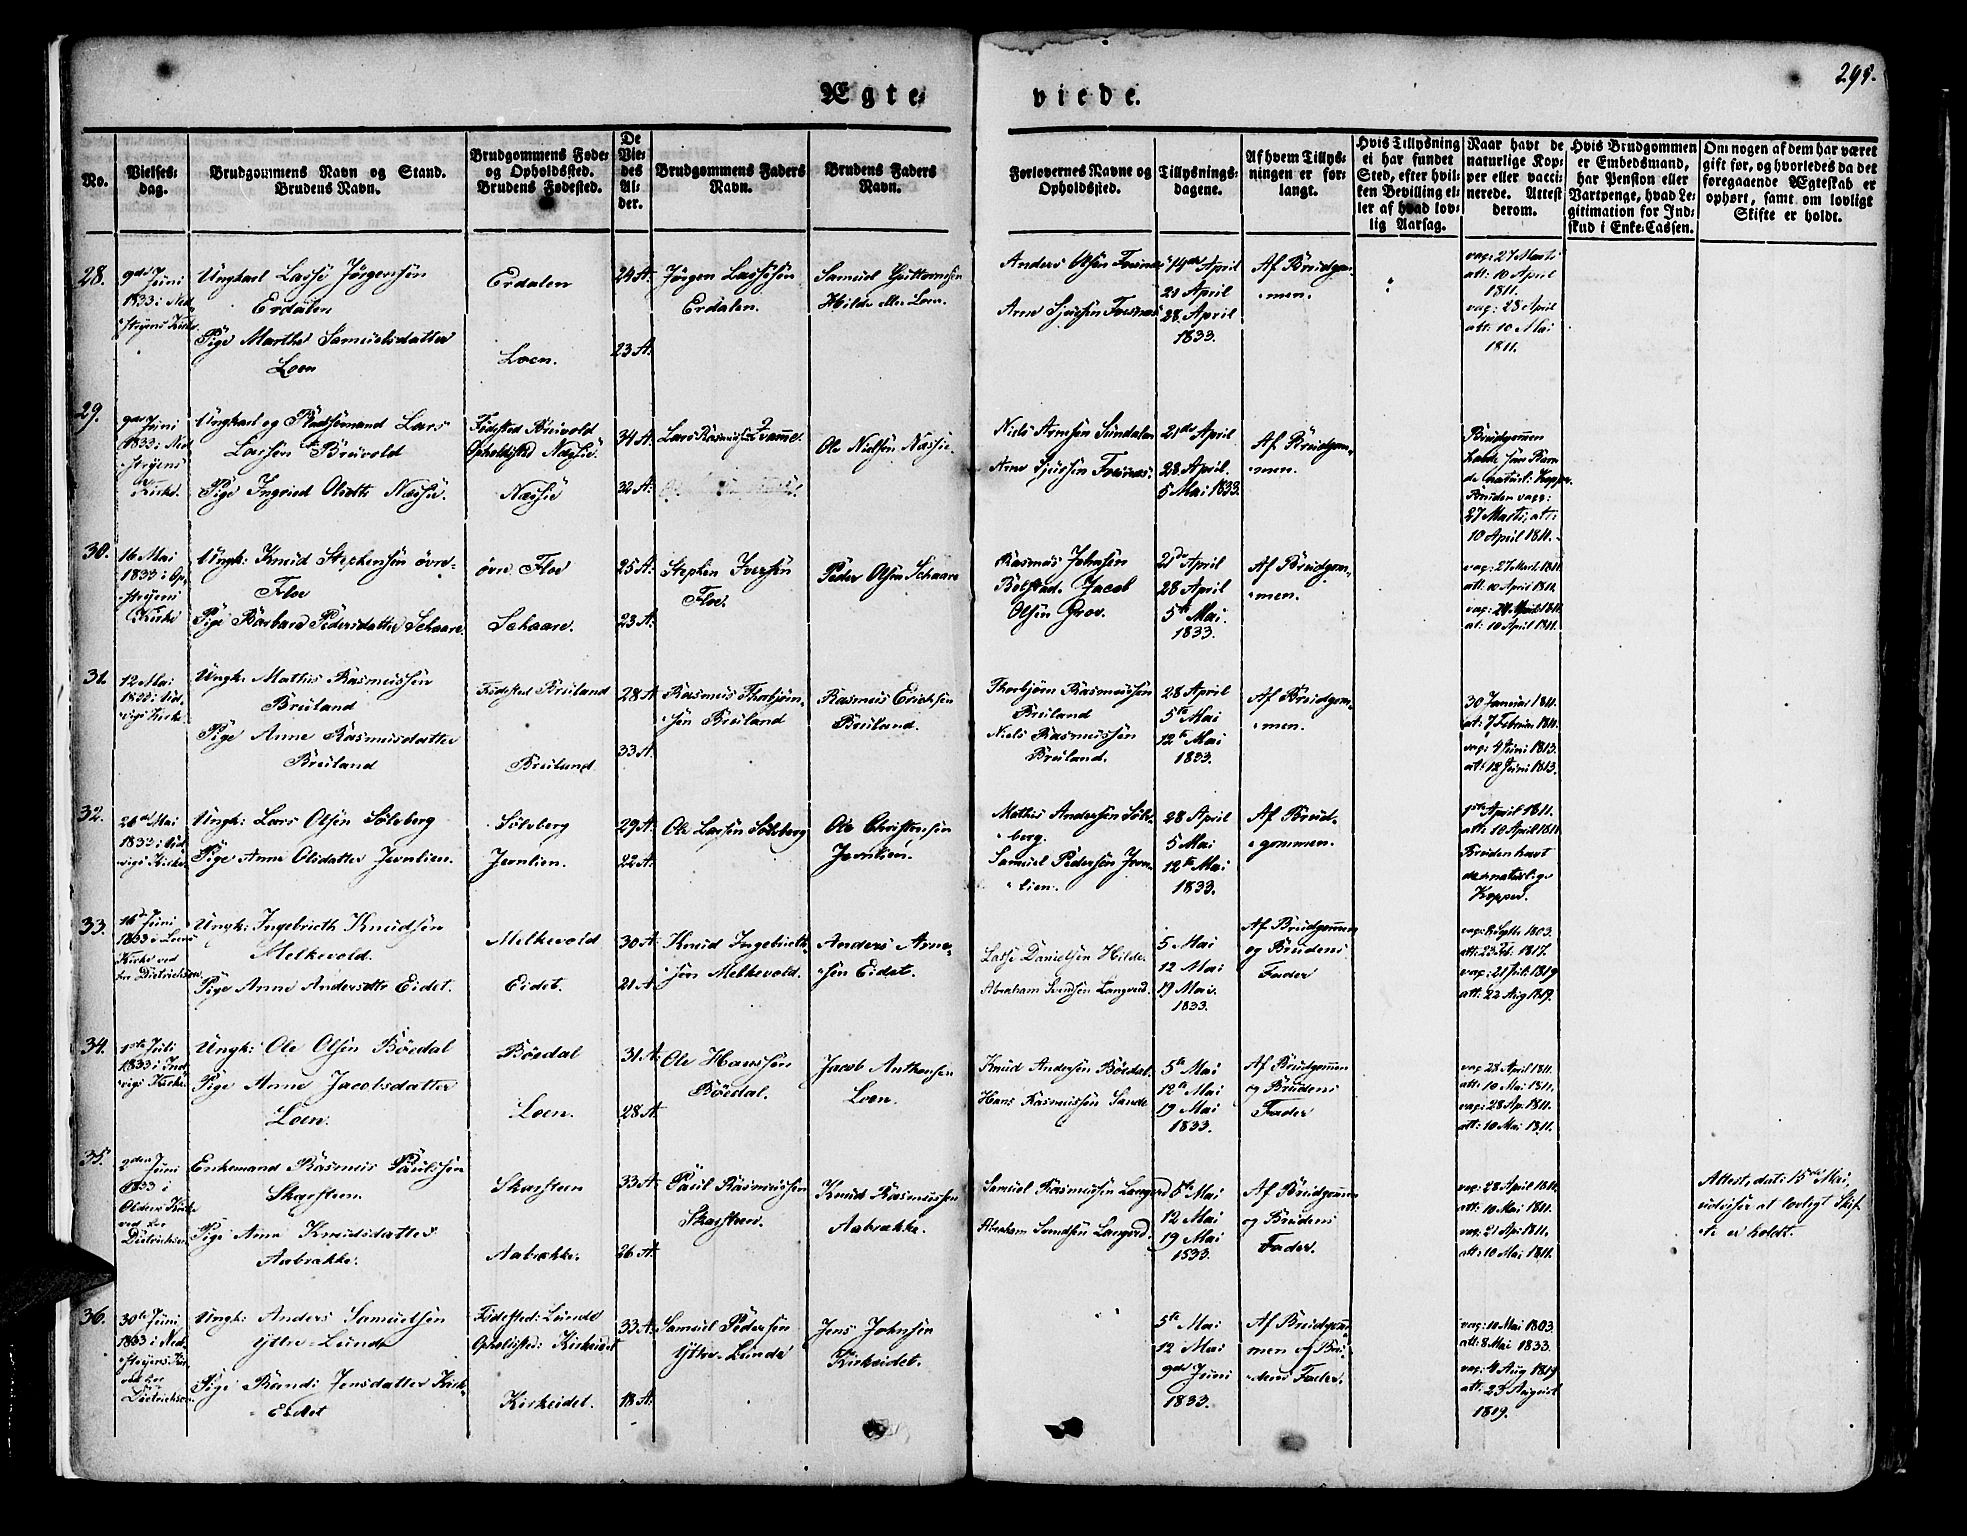 295.
Ægte-
viede.
No.
Vielses-
dag.
Brudgommens Navn og Stand.
Brudens Navn.
Brudgommens Føde-
og Opholdssted.
Brudens Fødested.
De
Vie-
des
Al-
der.
Brudgommens Faders
Navn.
Brudens Faders
Navn.
Forlovernes Navne og
Opholdsted.
Tillysnings-
dagene.
Af hvem Tillys-
ningen er for-
langt.
Hvis Tillysning
ei har fundet
Sted, efter hvil-
ken Bevilling el-
ler af hvad lov-
lig Aarsag.
Naar havt de
naturlige Kop-
per eller vacci-
nerede. Attest
derom.
Hvis Brudgommen
er Embedsmand,
har Pension eller
Vartpenge, hvad Le-
gitimation for Ind-
skud i Enke-Cassen.
Om nogen af dem har været
gift før, og hvorledes da det
foregaaende Ægteskab er
ophørt, samt om lovligt
Skifte er holdt.
28.
9de Juni
1833 i Ned
Stryens Kirke.
Ungkarl Lasse Jørgensen
Erdalen
Pige Marthe Samuelsdatter
Loen
Erdalen
Loen.
24 A.
23 A.
Jørgen Lassesen
Erdalen.
Samuel Guttormsen
Hilde eller Loen.
Anders Olsen Fosnæs
Arne Sjursen Fosnæs
14de April
21 April
28 April
1833.
Af Brudgom-
men.
vac: 27 Marti
att: 10 April
1811.
vac: 28 April
att: 10 Mai
1811.
29.
9de Juni
1833 i Ned
Stryens
Kirke.
Ungkarl og Pladsemand Lars
Larsen Brevold
Pige Ingried Olsdtr Næssie.
Fødested Brevold
Opholdsted Næssie.
Næssie
34 A.
32 A.
Lars Rasmussen Tvamme.
Ole Nielsen Næssie.
Niels Arnesen Sundalen
Arne Sjursen Fosnæs.
21de April
28 April.
5 Mai 1833.
Af Brudgom-
men.
Brudgommen
havde som Barn
de naturl: Kopper
Bruden vacc:
27 Marti, att:
10 April 1811.
30.
16 Mai
1833 i Op-
stryens
Kirke
Ungk: Knud Stephensen øvre-
Floe
Pige Barbara Pedersdatter Schaare.
øvre Floe
Schaare.
25 A.
23 A.
Stephen Iversen
Floe.
Peder Olsen Schaare
Rasmus Johnsen
Bolstad. Jacob
Olsen Grov.
21de April
28 April
5te Mai.
1833.
Af Brudgom-
men.
vac: 27 Mart. 1811.
att: 10 April 1811.
vac: 27 April 1811.
at: 10 April 1811.
31.
12 Mai
1833 i Ind
vigs Kirke.
Ungk: Mathis Rasmussen
Breiland
Pige Anne Rasmusdatter
Breiland
Fødested Breiland
Breiland
28 A.
33 A.
Rasmus Thorbjørn-
sen Breiland
Rasmus Erichsen
Breiland.
Thorbjørn Rasmussen
Breiland
Niels Rasmussen
Breiland.
28 April
5te Mai
12te Mai
1833.
Af Brudgom-
men.
30 Januar 1811.
at: 7 Februar 1811.
vac: 4 Juni 1813.
at: 12 Juni 1813.
32.
26de Mai
1833 i Ind
vigs Kirke.
Ungk: Lars Olsen Sølvberg
Pige Anne Olsdatter Jevnlien.
Sølvberg
Jevnlien.
29 A.
22 A.
Ole Larsen Sølvberg
Ole Christensen
Jevnlien.
Mathis Andersen Sølv-
berg.
Samuel Pedersen Jevn-
lien.
28 April
5 Mai
12te Mai
1833.
Af Brud-
gommen.
1ste April 1811.
att: 10 April 1811
Bruden havt
de naturlige
Kopper.
33.
16de Juni
1833 i Loens
Kirke ved
Hr Dietrichson
Ungk: Ingebrigth Knudsen
Melkevold.
Pige Anne Andersdtr Eidet.
Melkevold
Eidet.
30 A.
21 A.
Knud Ingebrigth-
sen Melkevold.
Anders Arne-
sen Eidet.
Lasse Danielsen Hilde.
Abraham Svendsen Langvad.
5 Mai
12 Mai
19 Mai.
1833.
Af Brudgommen
og Brudens
Fader
1803.
att: 23 Feb. 1817.
vac: 21 Juli 1819
att: 22 Aug 1819.
34.
1ste Juli
1833 i Ind
vigs Kirke.
Ungk: Ole Olsen Bøedal
Pige Anne Jacobsdatter
Loen.
Bøedal
Loen.
31 A.
28 A.
Ole Hanssen
Bøedal.
Jacob Anthonsen
Loen.
Knud Andersen Bøedal.
Hans Rasmussen Sande
5te Mai
12te Mai
19 Mai
1833.
Af Brudgommen
og Brudens
Fader
vac: 28 April 1811.
att: 10 Mai 1811.
vac: 28 Ap. 1811.
att: 10 Mai 1811.
35.
2den Juni
1833 i
Oldens Kirke
ved Hr
Dietrichson
Enkemand Rasmus Paulsen
Skarsteen.
Pige Anne Knudsdatter
Aabrække.
Skarsteen
Aabrække.
33 A.
26 A.
Paul Rasmussen
Skarsteen.
Knud Rasmussen
Aabrække.
Samuel Rasmussen Langvad
Abraham Svendsen Langvad.
5te Mai
12 Mai
19 Mai
1833.
Af Brudgommen
og Brudens
Fader.
vac: 28 April 1811.
att: 10 Mai 1811.
vac: 21 Apr. 1811.
att: 10 Mai 1811.
Attest, dat: 15de Mai,
udviser at lovligt Skif-
te er holdt.
36.
30te Juni
1833 i Ned
stryens Kir
ved Hr
Dietrichson
Ungk: Anders Samuelsen
Ytre-Lunde
Pige Randi Jensdatter Kirk-
Eidet
Fødested: Lunde
Opholdsted: Kirkeidet
Kirkeidet.
33 A.
18 A.
Samuel Pedersen
Ytre-Lunde
Jens Johnsen
Kirkeidet.
5te Mai
12 Mai
9de Juni
1833.
Af Brudgom-
men og Bru-
dens Fader.
vac: 10 Mai 1803.
att: 8 Mai 1833.
vac: 4 Aug 1819
att: 23 August
1819.